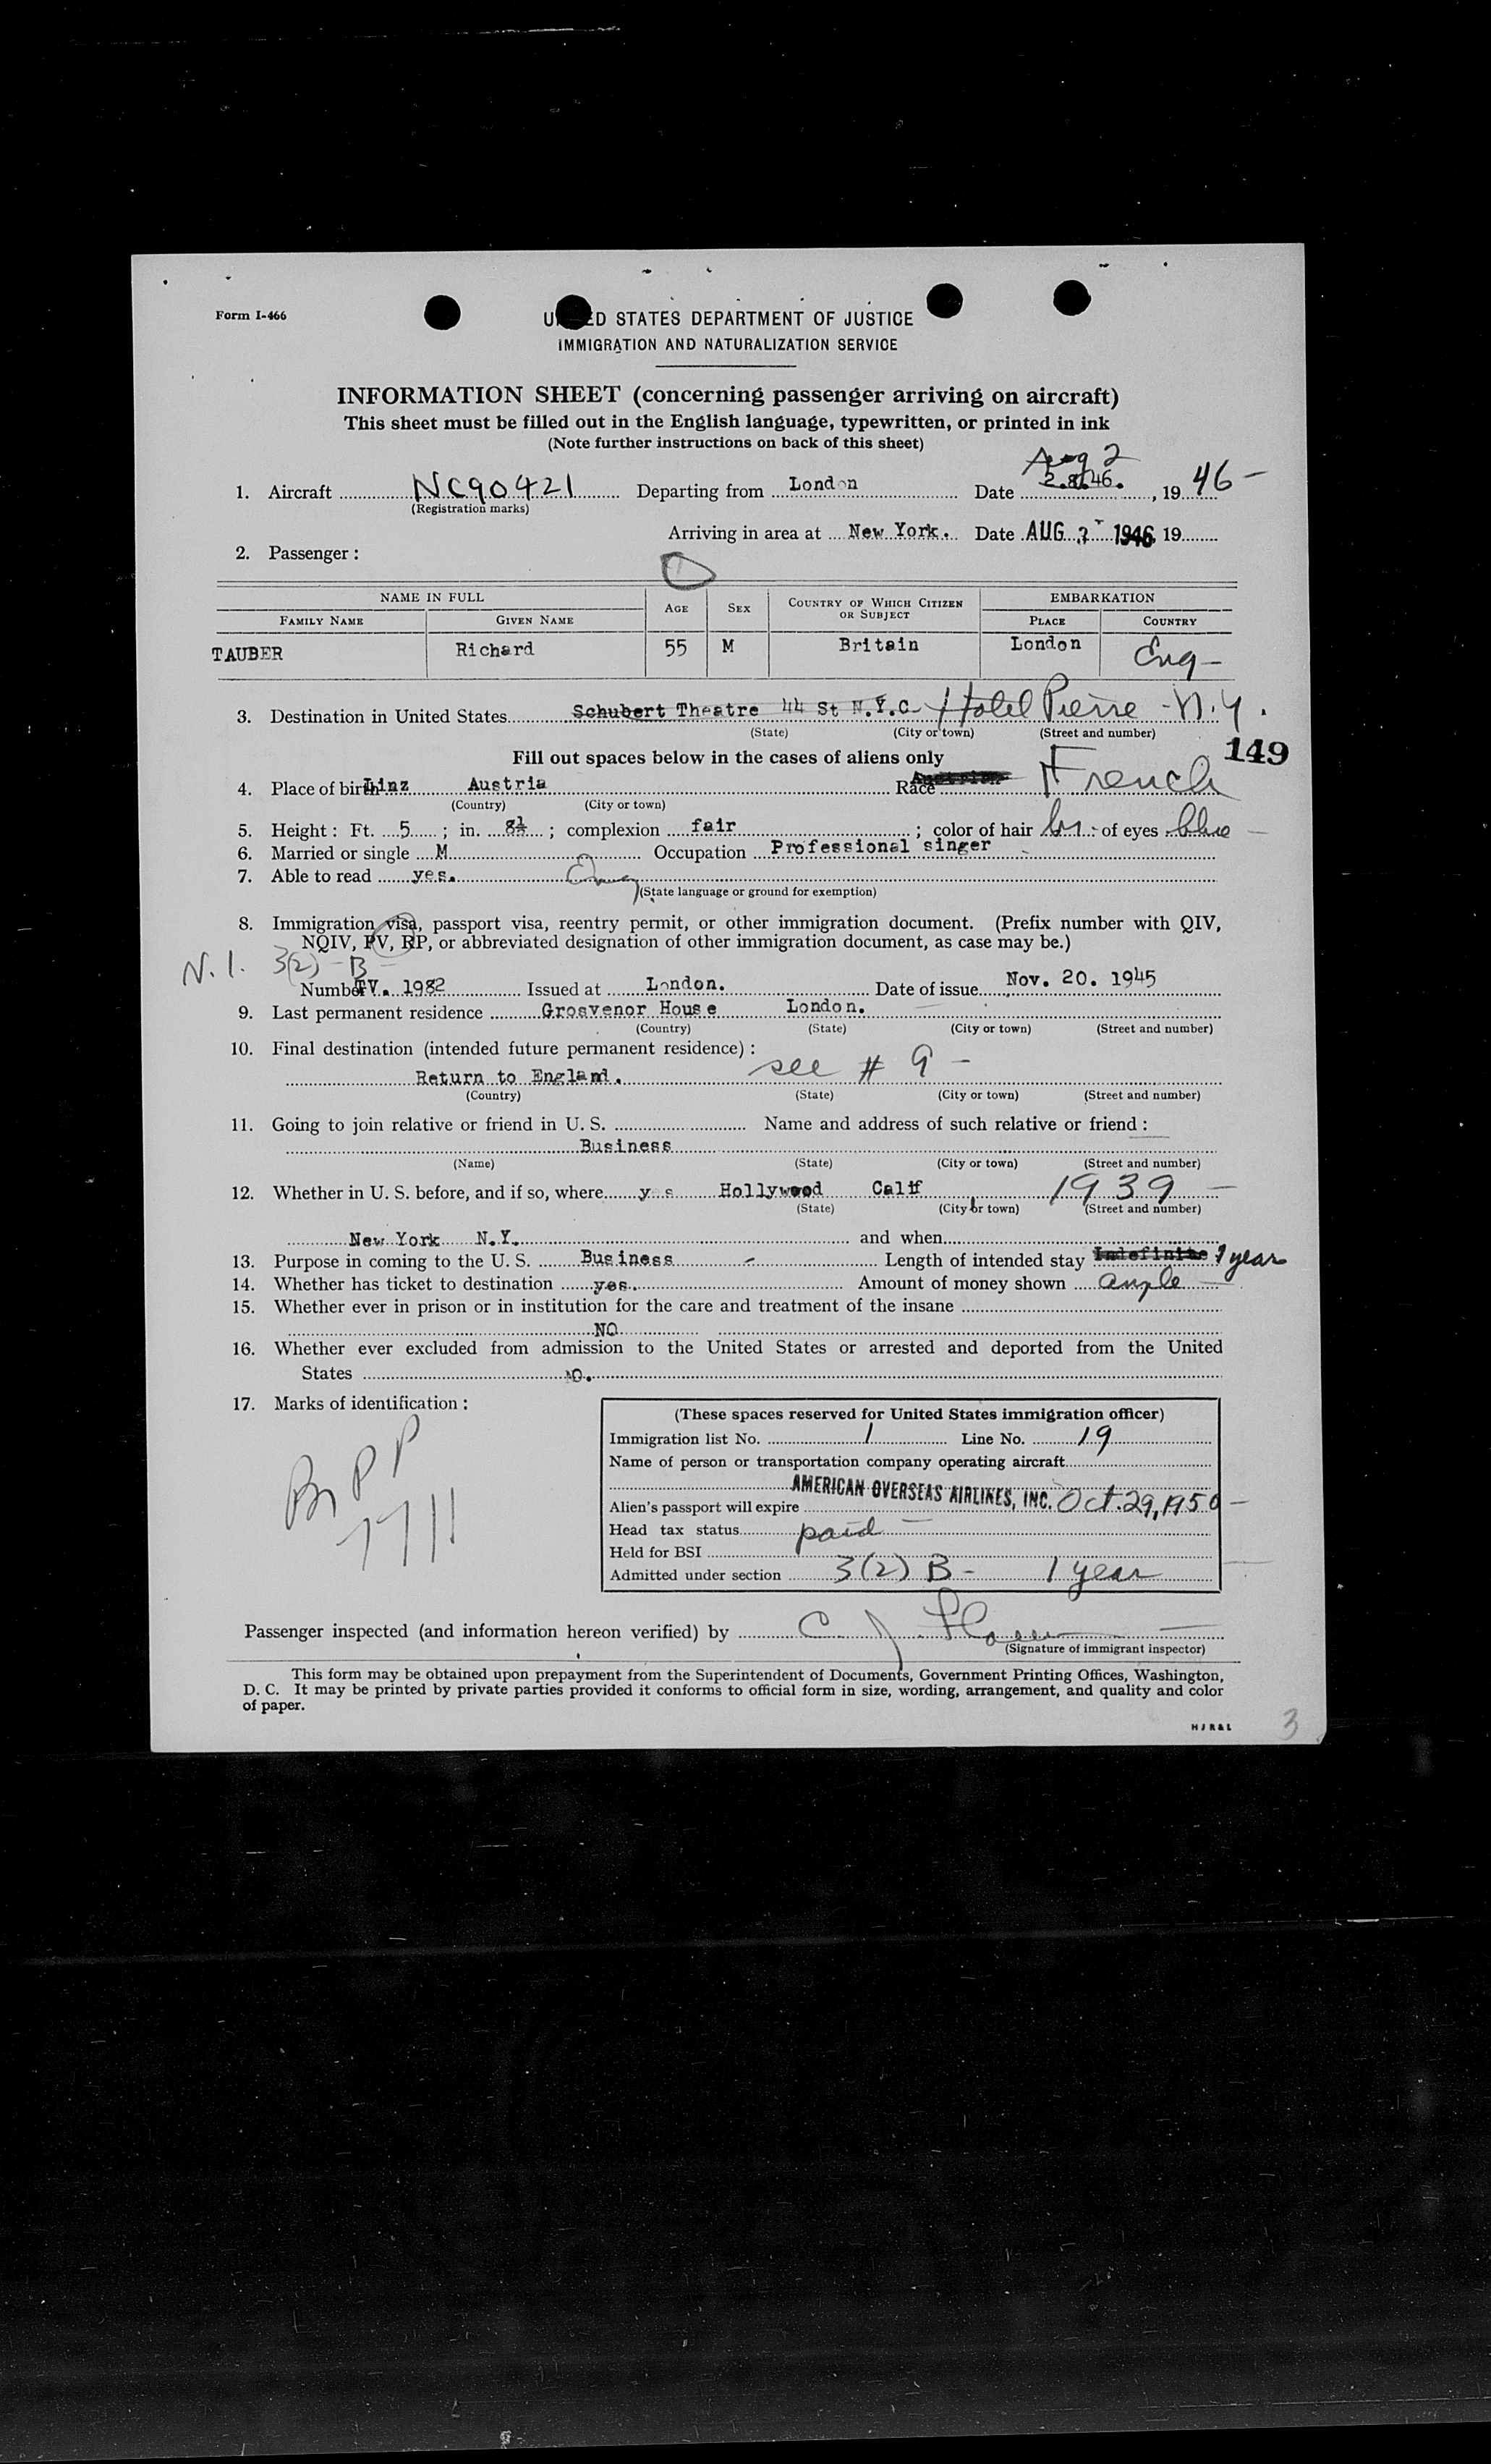 Form I-466
U ED STATES DEPARTMENT OF JUSTICE
IMMIGRATION AND NATURALIZATION SERVICE
INFORMATION SHEET (concerning passenger arriving on aircraft)
This sheet must be filled out in the English language, typewritten, or printed in ink
(Note further instructions on back of this sheet)
Aug 2
1. Aircraft NC90421 Departing from London Date 2.8.46. , 19 46 -
(Registration marks)
Arriving in area at New York. Date AUG 1946 19
2. Passenger :
NAME IN FULL AGE SEX COUNTRY OF WHICH CITIZEN OR SUBJECT EMBARKATION
FAMILY NAME GIVEN NAME PLACE COUNTRY
TAUBER Richard 55 M Britain London Eng -
3. Destination in United States Schubert Theatre 44 St N.Y.C. Hotel Pierre - N.Y.
(State) (City or town) (Street and number)
149
Fill out spaces below in the cases of aliens only
4. Place of birth Linz Austria Race French
(Country) (City or town)
5. Height : Ft. 5 ; in. 8½ ; complexion fair ; color of hair br : of eyes blue -
6. Married or single M Occupation Professional singer
7. Able to read yes. Eng
(State language or ground for exemption)
8. Immigration visa, passport visa, reentry permit, or other immigration document. (Prefix number with QIV,
NQIV, PV, RP, or abbreviated designation of other immigration document, as case may be.)
N.I. 3(2) - B
Number TV. 1982 Issued at London. Date of issue Nov. 20. 1945
9. Last permanent residence Grosvenor House London.
(Country) (State) (City or town) (Street and number)
10. Final destination (intended future permanent residence) :
Return to England. see # 9 -
(Country) (State) (City or town) (Street and number)
11. Going to join relative or friend in U. S. Name and address of such relative or friend :
Business
(Name) (State) (City or town) (Street and number)
12. Whether in U. S. before, and if so, where yes Hollywood Calif 1939 -
(State) (City or town) (Street and number)
New York N.Y. and when
13. Purpose in coming to the U. S. Business - Length of intended stay Indefinite 1 year
14. Whether has ticket to destination yes. Amount of money shown ample
15. Whether ever in prison or in institution for the care and treatment of the insane
NO
16. Whether ever excluded from admission to the United States or arrested and deported from the United
States NO.
17. Marks of identification :
Br P P
7711
(These spaces reserved for United States immigration officer)
Immigration list No. 1 Line No. 19
Name of person or transportation company operating aircraft
AMERICAN OVERSEAS AIRLINES, INC.
Alien's passport will expire Oct. 29, 1950 -
Head tax status paid -
Held for BSI
Admitted under section 3(2) B - 1 year
Passenger inspected (and information hereon verified) by C. J.
(Signature of immigrant inspector)
This form may be obtained upon prepayment from the Superintendent of Documents, Government Printing Offices, Washington,
D. C. It may be printed by private parties provided it conforms to official form in size, wording, arrangement, and quality and color
of paper.
H J R & L
3